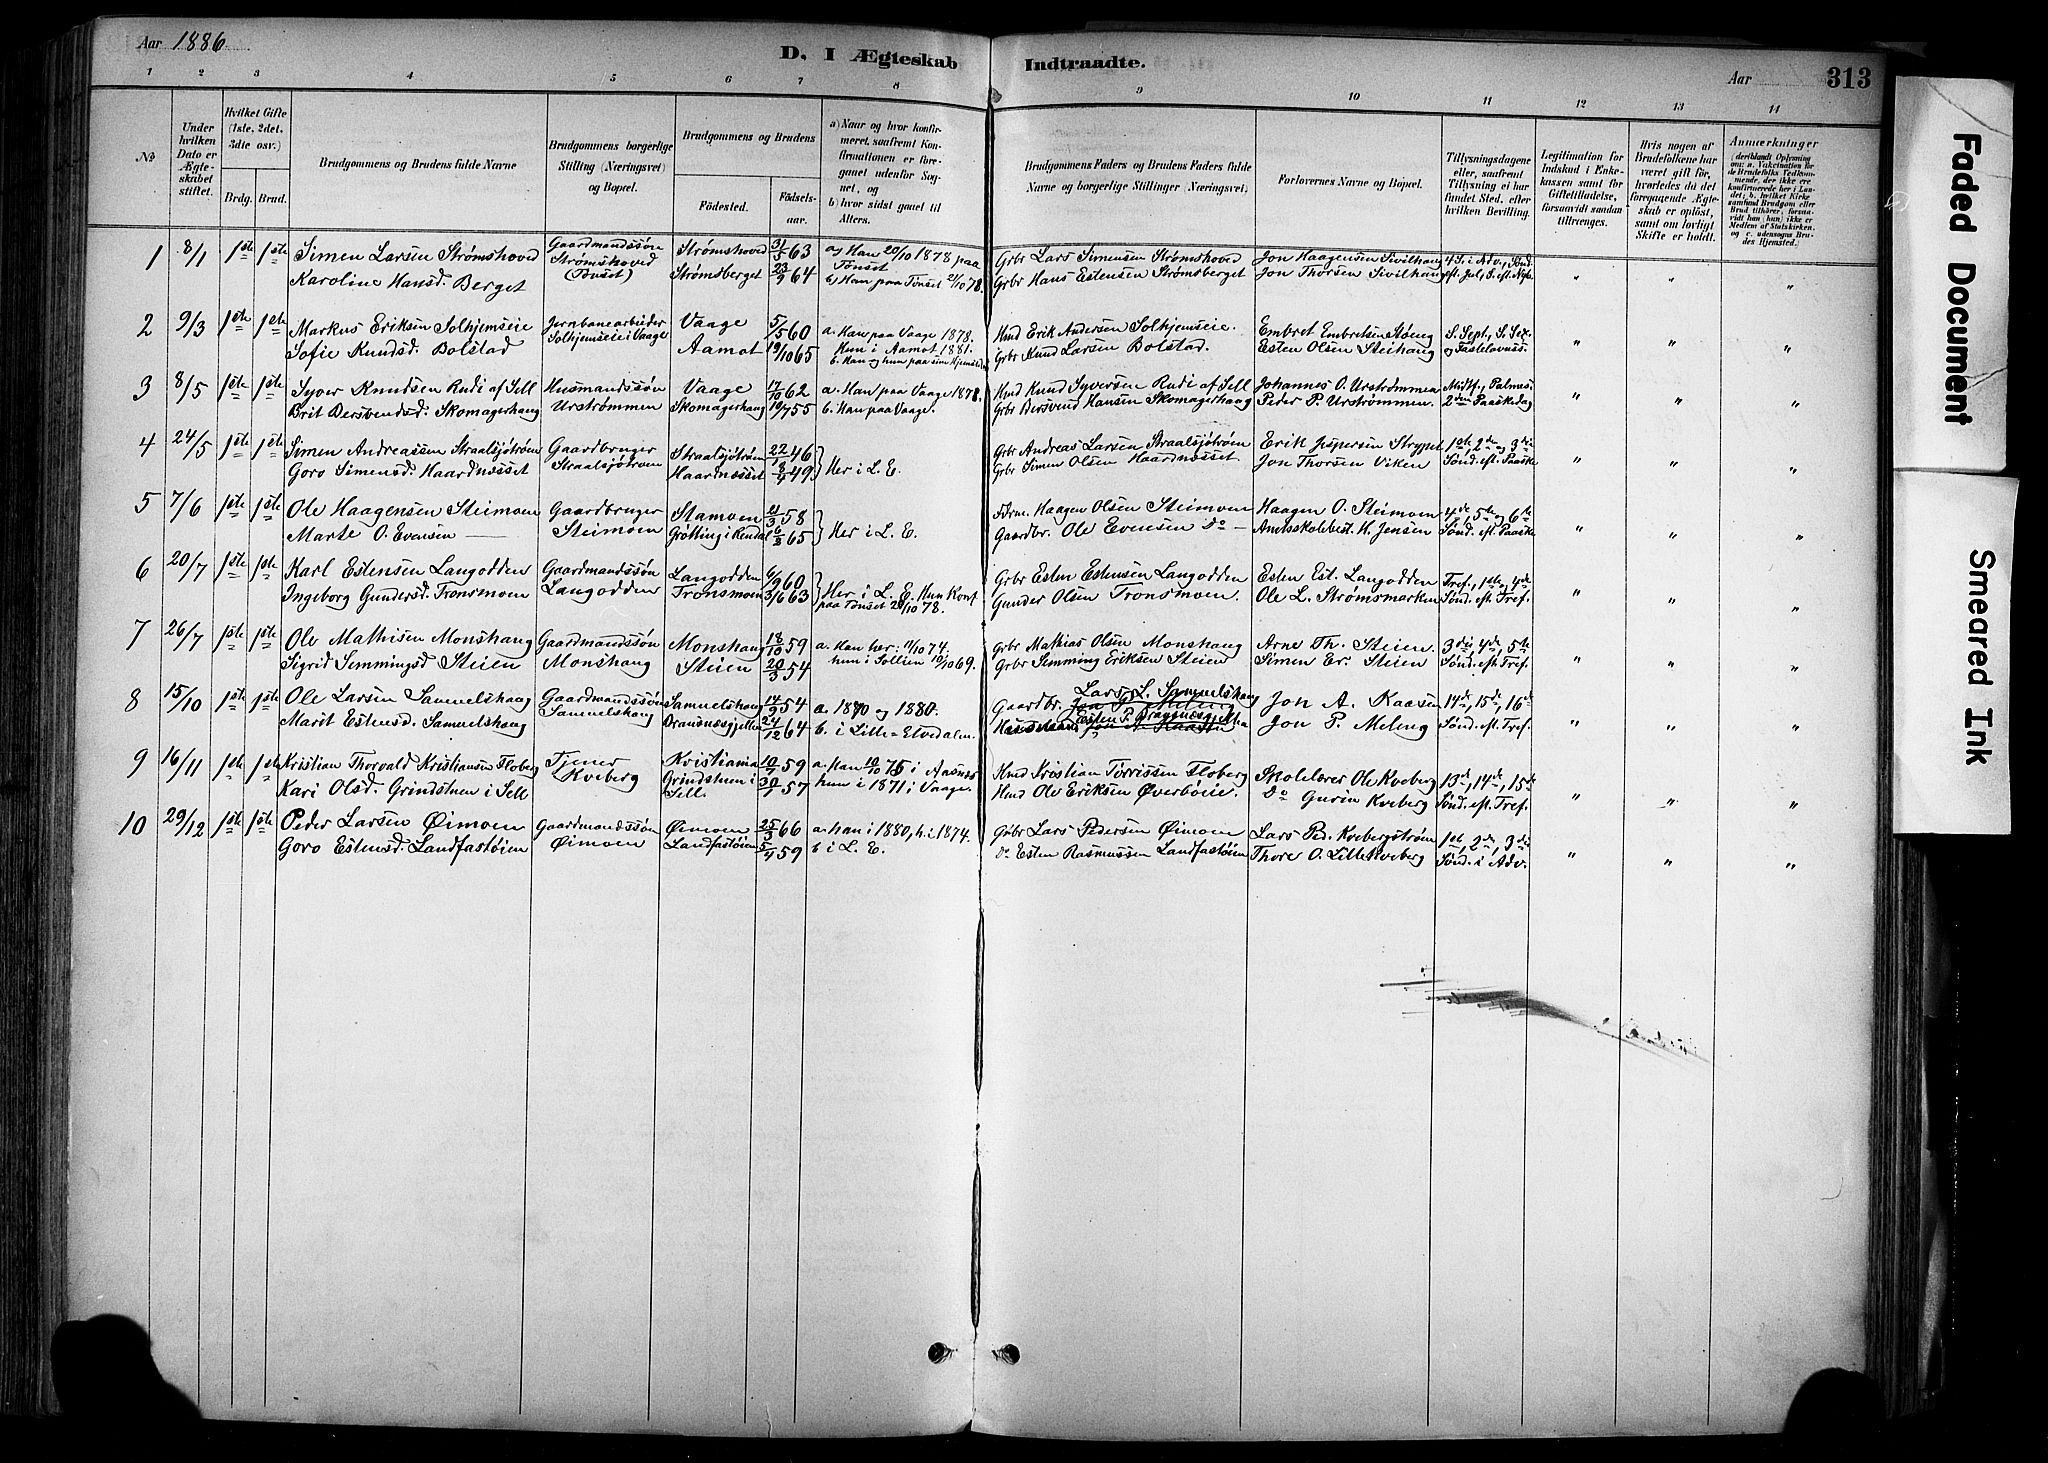 Aar 1886
D. I Ægteskab Indtraadte.
Aar
313
1 2 3 4 5 6 7 8 9 10 11 12 13 14
No
Under hvilken Dato er Ægteskabet stiftet.
Hvilket Gifte (1ste, 2det, 3die osv.)
Brdg. Brud.
Brudgommens og Brudens fulde Navne
Brudgommens borgerlige Stilling (Næringsvei) og Bopæl.
Brudgommens og Brudens
Fødested.
Fødselsaar.
a) Naar og hvor konfirmeret, saafremt Konfirmationen er foregaaet udenfor Sognet, og
b) hvor sidst gaaet til Alters.
Brudgommens Faders og Brudens Faders fulde Navne og borgerlige Stillinger (Næringsvei)
Forlovernes Navne og Bopæl.
Tillysningsdagene eller, saafremt Tillysning ei har fundet Sted, efter hvilken Bevilling.
Legitimation for Indskud i Enkekassen samt for Giftetilladelse, forsaavidt saadan tiltrænges.
Hvis nogen af Brudefolkene har været gift før, hvorledes da det foregaaende Ægteskab er opløst, samt om lovligt Skifte er holdt.
Anmærkninger
(deriblandt Oplysning om: a. Vakcination for de Brudefolks Vedkommende, der ikke ere konfirmerede her i Landet; b. hvilket Kirkesamfund Brudgom eller Brud tilhører, forsaavidt han (hun) ikke er Medlem af Statskirken, og c. udensogns Brudes Hjemsted.)
1 8/1 1ste 1ste Simen Larsen Strømshoved Gaardmandssøn Strømshoved 31/5 63 a) Han 20/10 1878 paa Grbr Lars Simensen Strømshoved Jon Haagensen Sivilhaug 4 S. i Adv., Sønd.
Karoline Hansd. Berget Strømshoved (Tuset) Strømsberget 23/9 64 Tønset b) Hun paa Tønset 21/10 78. Grbr Hans Estensen Strømsberget Jon Thorsen Sivilhaug eft. Jul, S. eft. Nytr. " " "
2 9/3 1ste 1ste Markus Eriksen Solhjemseie Jernbanearbeider Vaage 5/5 60 a. Han paa Vaage 1878. Hmd Erik Andersen Solhjemseie. Embret Embretsen Støeng S. Sept., S. Sex.
Sofie Knudsd. Bolstad Solhjemseie i Vaage Aamot 19/10 65 Hun i Aamot 1881. b. Han og hun paa sin Hjemsted Grbr Knud Larsen Bolstad. Esten Olsen Steihaug og Fastelavnss. " " "
3 8/5 1ste 1ste Syver Knudsen Rudi af Sell Husmandssøn Vaage 17/10 62 a. Han paa Vaage 1878. Hmd Knud Syversen Rudi af Sell Johannes O. Urstrømmen Midtf., Palmes.
Brit Bersvendsd. Skomagerhaug Urstrømmen Skomagerhaug 19/7 55 b. Han paa Vaage. Grbr Bersvend Hansen Skomagerhaug Peder P. Urstrømmen. 2den Paaskedag " " "
4 24/5 1ste 1ste Simen Andreassen Straalsjøtrøen Gaardbruger Straalsjøtrøen 22/1 46 Grbr Andreas Larsen Straalsjøtrøen Erik Jespersen Strypet 1ste, 2den og 3die
Goro Simensd. Haardnæsset Straalsjøtrøen Haardnæsset 18/4 49 Her i L. E. Grbr Simen Olsen Haardnæsset. Jon Thorsen Viken Sønd. eft. Paaske " " "
5 7/6 1ste 1ste Ole Haagensen Steimoen Gaardbruger Stamoen 4/3 58 Haagen Olsen Steimoen Haagen O. Steimoen 4de, 5te og 6te
Marte O. Evensen — Steimoen Grøtting i Rendal 6/8 65 Her i L. E. Gaardbr. Ole Evensen Do — Amtsskolebest. H. Jensen Sønd. eft. Paaske " " "
6 20/7 1ste 1ste Karl Estensen Langodden Gaardmandssøn Langodden 6/9 60 Her i L. E. Hun Konf. Grbr Esten Estensen Langodden Esten Est. Langodden Tref., 1ste, 4de
Ingeborg Gundersd. Tronsmoen Langodden Tronsmoen 3/6 63 paa Tønset 20/10 78. Gunder Olsen Tronsmoen. Ole L. Strømsmarken Sønd. eft. Tref. " " "
7 26/7 1ste 1ste Ole Mathisen Monshaug Gaardmandssøn Monshaug 18/10 59 a. Han her: 11/10 74. Grbr Mathias Olsen Monshaug Arne Th. Steien. 3die, 4de, 5te
Sigrid Semmingsd. Steien Monshaug Steien 20/3 54 hun i Sollien 10/10 69. Grbr Semming Eriksen Steien Simen Er. Steien Sønd. eft. Tref. " " "
8 15/10 1ste 1ste Ole Larsen Samuelshaug Gaardmandssøn Samuelshaug 14/9 54 a. 1870 og 1880. Gaardbr. Lars L. Samuelshaug Jon A. Kaasen 14de, 15de, 16de
Marit Estensd. Samuelshaug Samuelshaug Brandnæsgjelten 24/12 64 b. i Lille-Elvedalen. Esten P. Jon P. Meleng Sønd. eft. Tref. " " "
9 16/11 1ste 1ste Kristian Thorvald Kristiansen Floberg Tjener Kristiania 10/7 59 a. Han 10/10 75 i Aasnes Hmd Kristian Torrissen Floberg Skolelærer Ole Kveberg 13de, 14de, 15de
Kari Olsd. Grindstuen i Sell Kveberg Grindstuen i Sell 30/1 57 hun i 1871 i Vaage. Hmd Ole Eriksen Øverbøeie. Do Gurin Kveberg Sønd. eft. Tref. " " "
10 29/12 1ste 1ste Peder Larsen Øimoen Gaardmandssøn Øimoen 25/3 66 a. han i 1880, h. i 1874. Grbr Lars Pedersen Øimoen Lars Ped. Kvebergstrøen 1ste, 2den, 3die
Goro Estensd. Landfastøien Øimoen Landfastøien 5/4 59 b i L. E. Do Esten Rasmussen Landfastøien Thore O. Lille Kveberg Sønd. i Adv. " " "
Faded Document
Smeared Ink